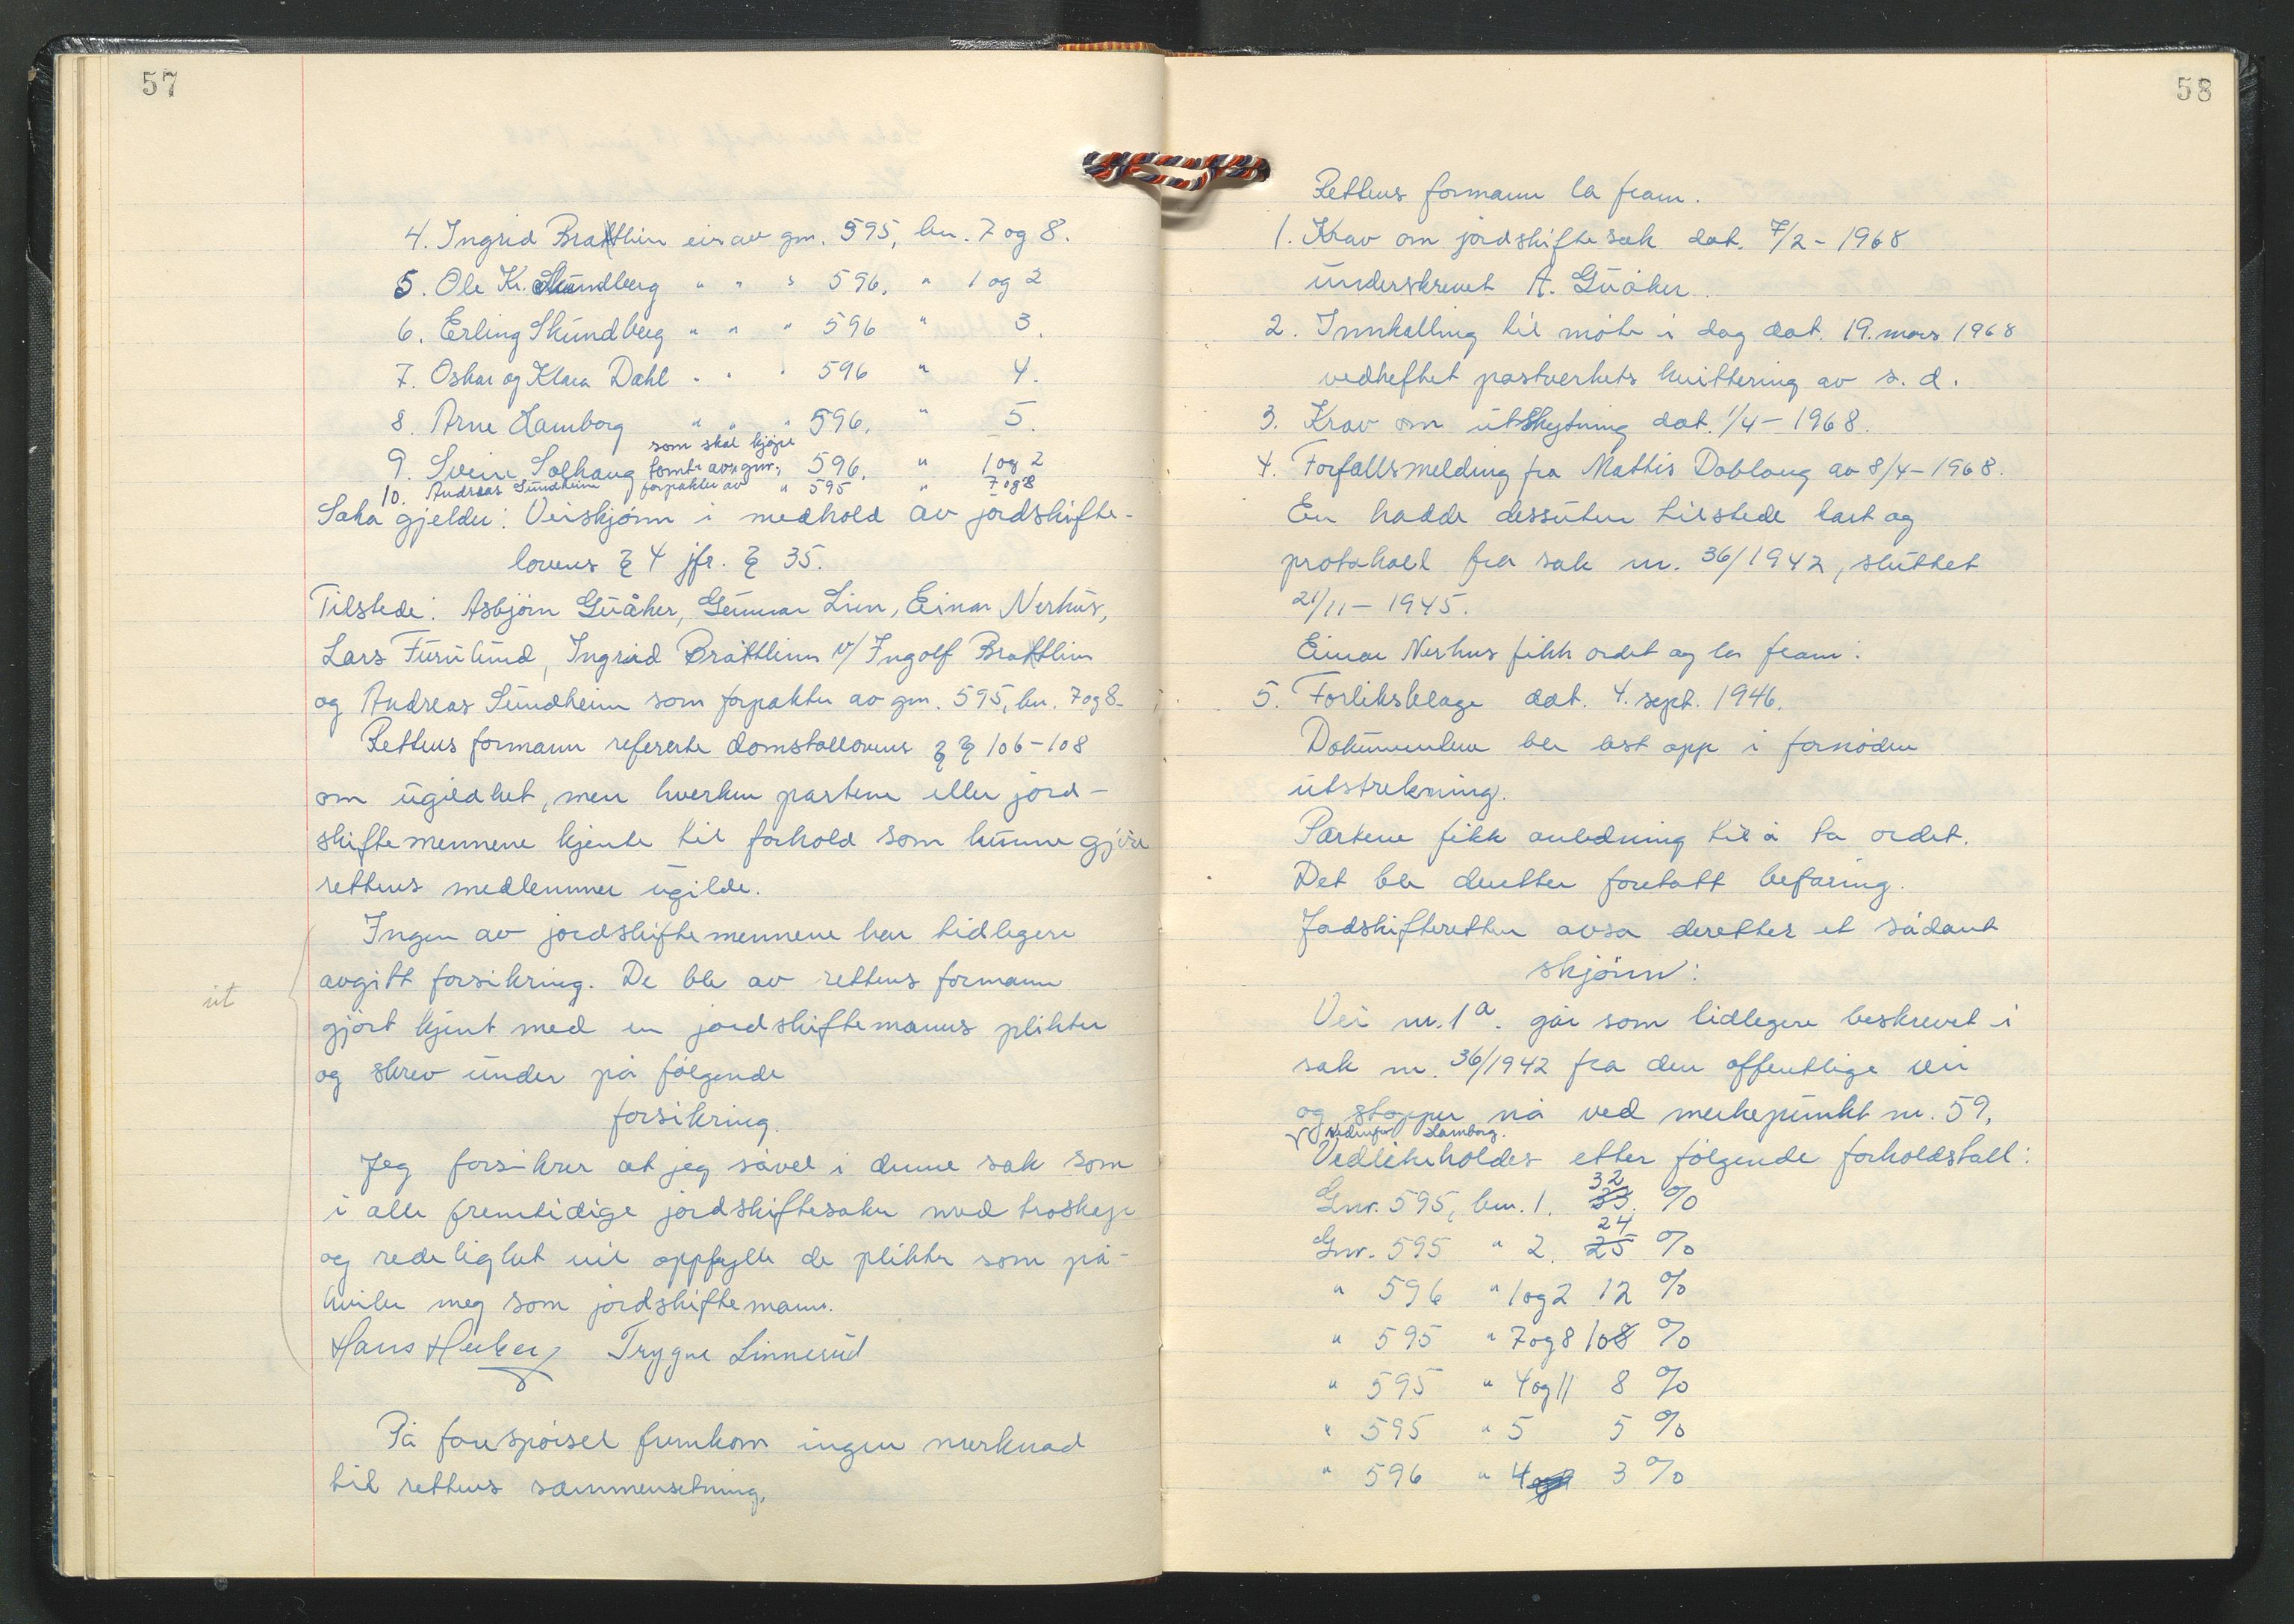 57
4. Ingrid Brattlien eier av gnr. 595, bnr. 7 og 8.
5. Ole Kr. Skundberg " " " 596. " 1 og 2
6. Erling Skundberg " " " 596 " 3.
7. Oskar og Klara Dahl " " " 596 " 4.
8. Arne Hamborg " " " 596. " 5.
som skal kjøpe
9. Svein Solhaug tomt av gnr. 596. " 1 og 2
10. Andreas Sundheim forpakter av " 595 " 7 og 8
Saka gjelder: Veiskjønn i medhold av jordskifte-
lovens § 4 jfr. § 35.
Tilstede: Asbjørn Guåker, Gunnar Lien, Einar Nerhus,
Lars Furulund, Ingrid Brattlien v/ Ingolf Brattlien
og Andreas Sundheim som forpakter av gnr. 595, bnr. 7 og 8.
Rettens formann refererte domstollovens §§ 106-108
om ugildhet, men hverken partene eller jord-
skiftemennene kjente til forhold som kunne gjøre
rettens medlemmer ugilde.
Ingen av jordskiftemennene har tidligere
avgitt forsikring. De ble av rettens formann
ut
gjort kjent med en jordskiftemanns plikter
og skrev under på følgende
forsikring.
Jeg forsikrer at jeg såvel i denne sak som
i alle fremtidige jordskiftesaker med troskap
og redelighet vil oppfylle de plikter som på-
hviler meg som jordskiftemann.
Hans Heiberg Trygve Linnerud
På forespørsel fremkom ingen merknad
til rettens sammensetning.
58
Rettens formann la fram.
1. Krav om jordskiftesak dat. 7/2 - 1968
underskrevet A. Guåker.
2. Innkalling til møte i dag dat. 19. mars 1968
vedheftet postverkets kvittering av s. d.
3. Krav om utskytning dat. 1/4 - 1968.
4. Forfallsmelding fra Mattis Dobloug av 8/4 - 1968.
En hadde dessuten tilstede kart og
protokoll fra sak nr. 36/1942, sluttet
21/11 - 1945.
Einar Nerhus fikk ordet og la fram:
5. Forliksklage dat. 4. sept. 1946.
Dokumentene ble lest opp i fornøden
utstrekning.
Partene fikk anledning til å ta ordet.
Det ble deretter foretatt befaring.
Jordskifteretten avsa deretter et sådant
skjønn:
Vei nr. 1a. går som tidligere beskrevet i
sak nr. 36/1942 fra den offentlige vei
og stopper nå ved merkepunkt nr. 59,
nedenfor Hamborg.
Vedlikeholdes etter følgende forholdstall:
Gnr. 595, bnr. 1. 33. 32 %
Gnr. 595 " 2. 25 24 %
" 596 " 1 og 2 12 %
" 595 " 7 og 8 108 %
" 595 " 4 og 11 8 %
" 595 " 5 5 %
" 596 " 4 3 %